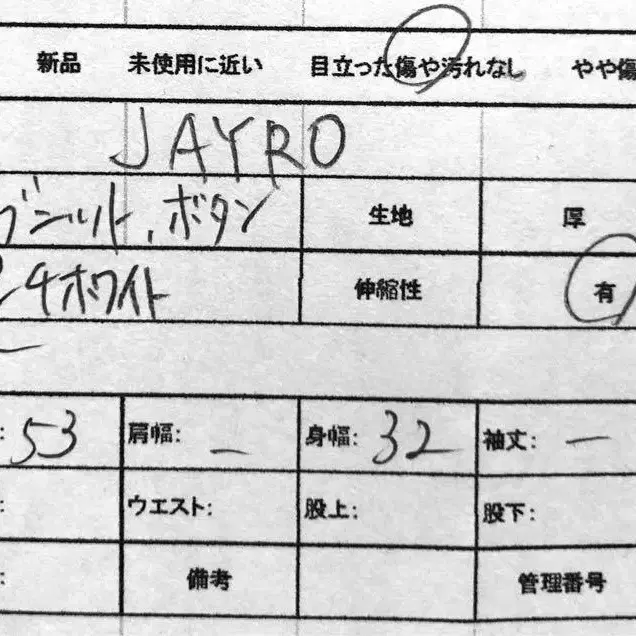 新品 未使用に近い 目立った傷や汚れなし やや傷
JAYRO
ボタン 生地 厚
ホワイト 伸縮性 有
: 53 肩幅: — 身幅: 32 袖丈: —
: ウエスト: 股上: 股下:
: 備考 管理番号